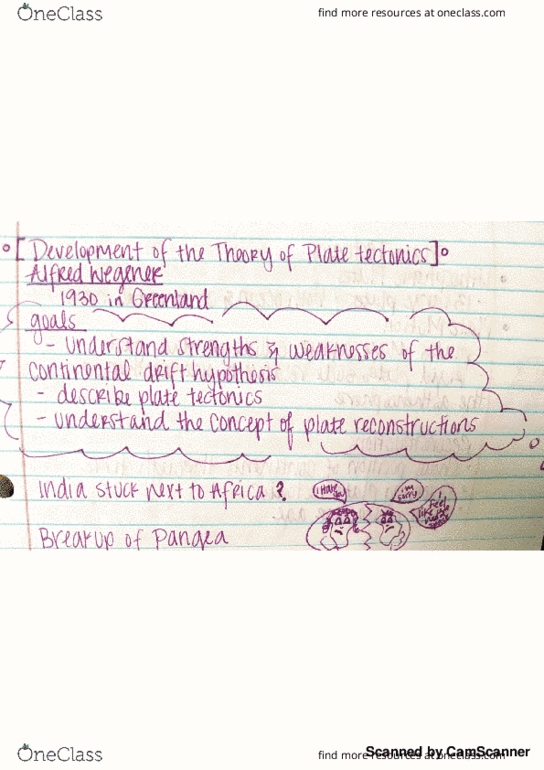 OneClass
find more resources at oneclass.com
[Development of the Theory of Plate tectonics]
Alfred Wegener
1930 in Greenland
goals
- understand strengths & weaknesses of the
continental drift hypothesis
- describe plate tectonics
- understand the concept of plate reconstructions
India stuck next to Africa?
I Hate
I'm
sorry
I
feel
like
Breakup of Pangea
OneClass
find more resources at oneclass.com
Scanned by CamScanner